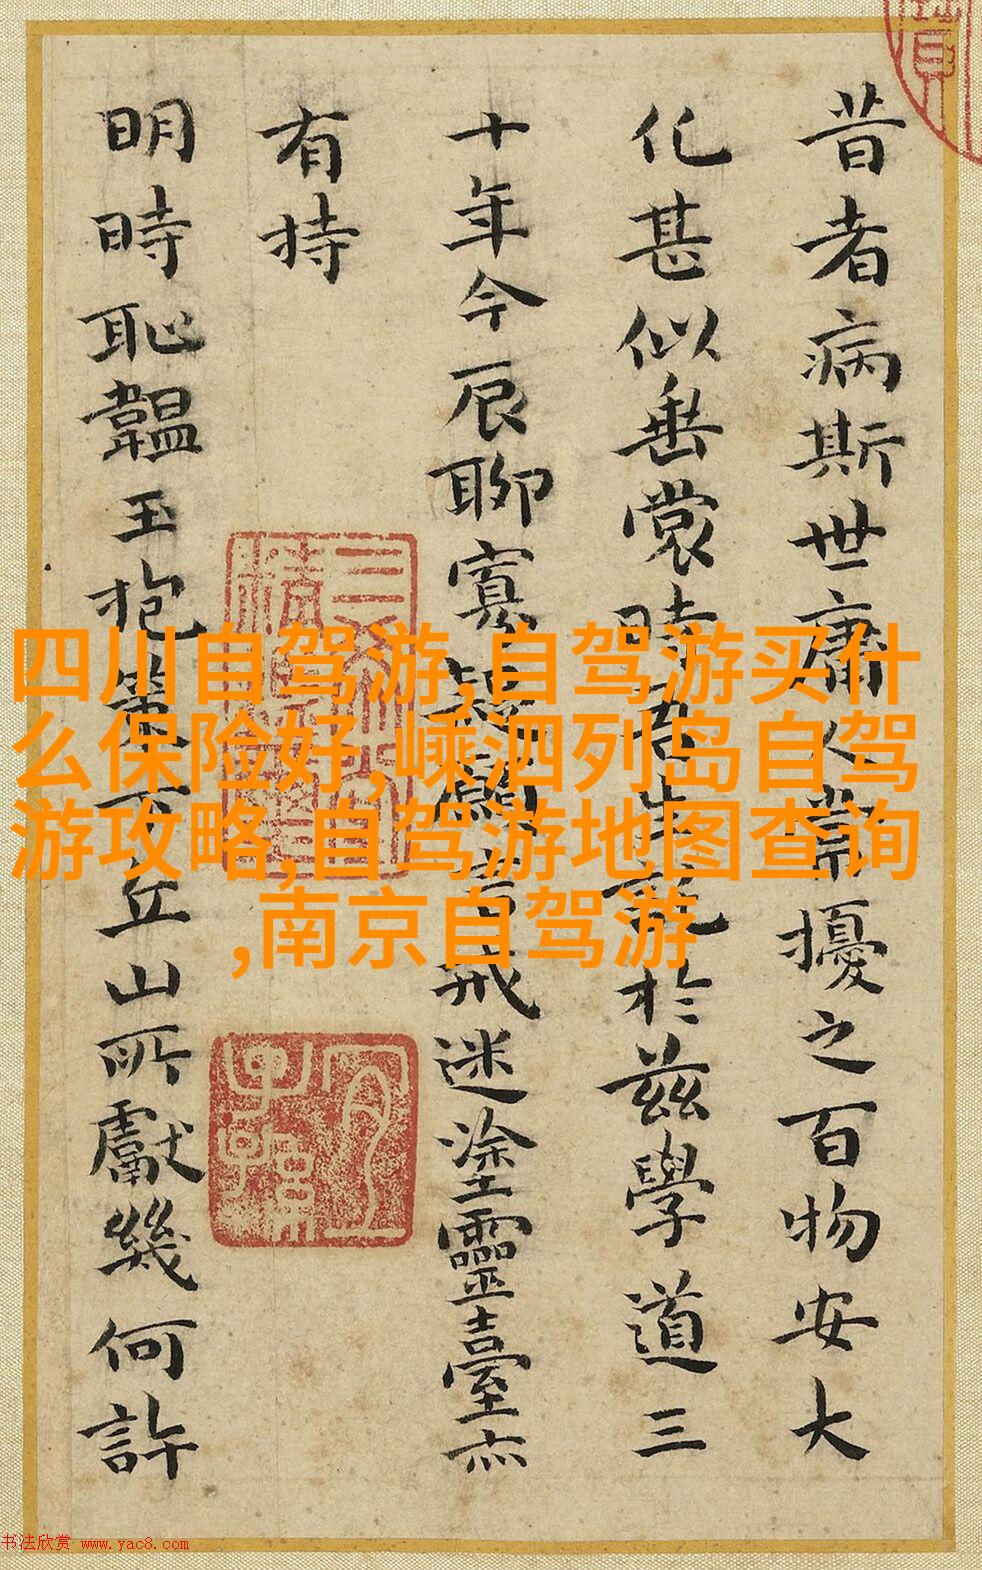 昔者病斯世庸人常擾之百物安大
化甚似垂裳時吾生託於茲學道三
十年今辰聊寡疑顧惟戒迷塗靈臺亦
有持
明時恥韞玉抱策下丘山所獻幾何許
四川自驾游,自驾游买什
么保险好,嵊泗列岛自驾
游攻略,自驾游地图查询
,南京自驾游
书法欣赏 www.yac8.com